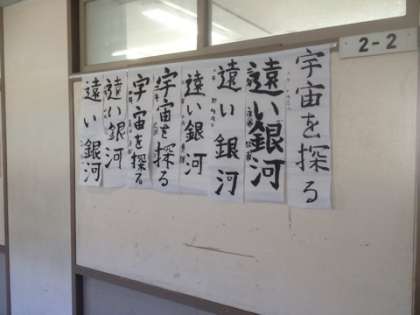 2-2
宇宙を探る
遠い銀河
遠い銀河
遠い銀河
宇宙を探る
宇宙を探る
遠い銀河
遠い銀河